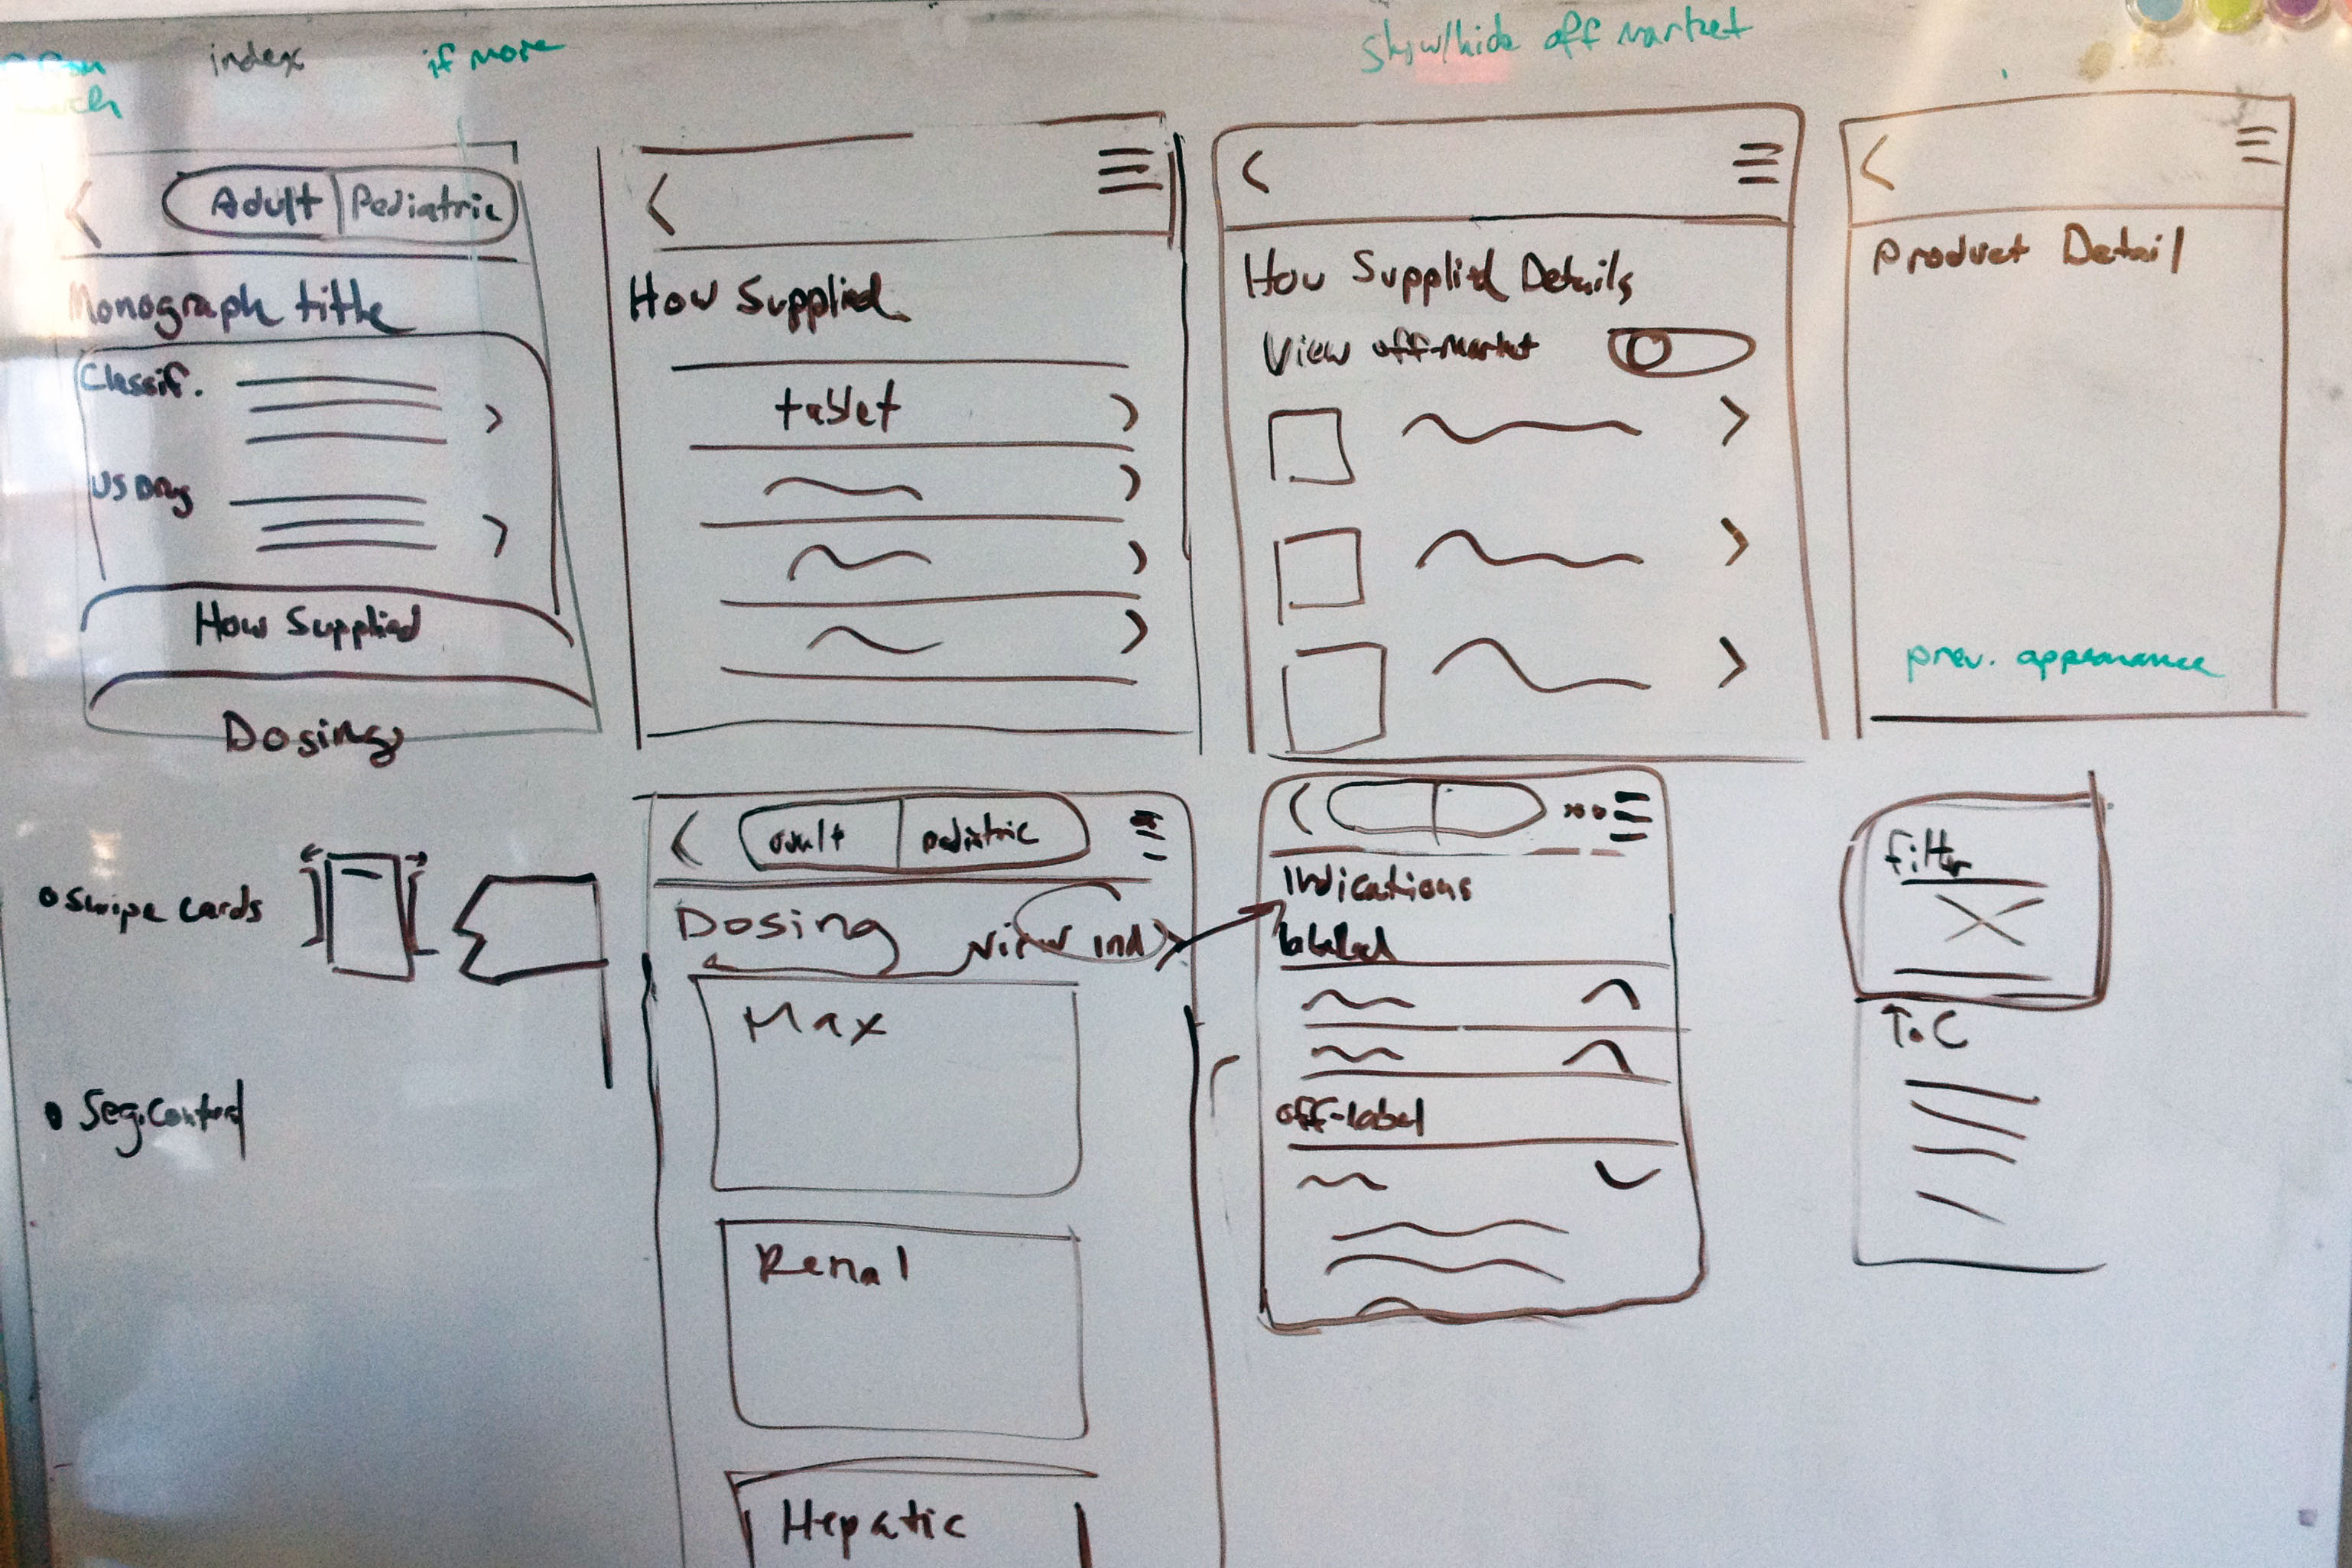 index
if more
show/hide off market
Adult Pediatric
Monograph title
Classif.
US Drug
How Supplied
Dosing
How Supplied
tablet
How Supplied Details
View off-market
Product Detail
prev. appearance
swipe cards
Seg. Control
adult pediatric
Dosing
View ind
Max
Renal
Hepatic
Indications
labeled
off-label
filter
ToC